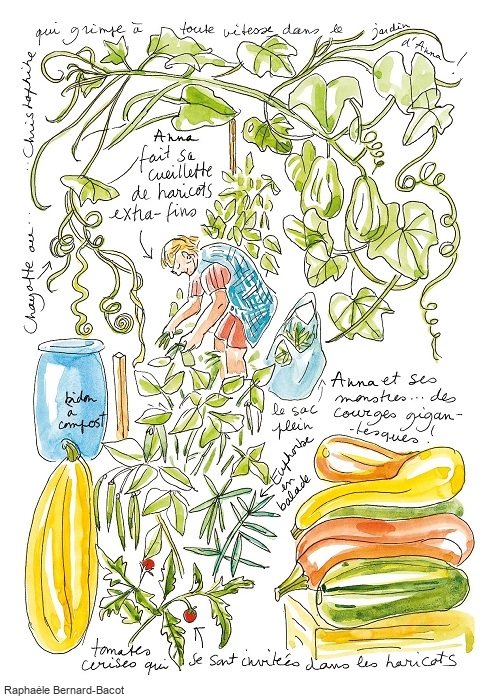 Chayotte ou... Christophine
qui grimpe à toute vitesse dans le jardin
d'Anna !
Anna
fait sa
cueillette
de haricots
extra-fins
bidon
à
compost
le sac
plein
Anna et ses
monstres... des
courges gigan-
-tesques !
Euphorbe
en
balade
tomates
cerises qui se sont invitées dans les haricots
Raphaële Bernard-Bacot